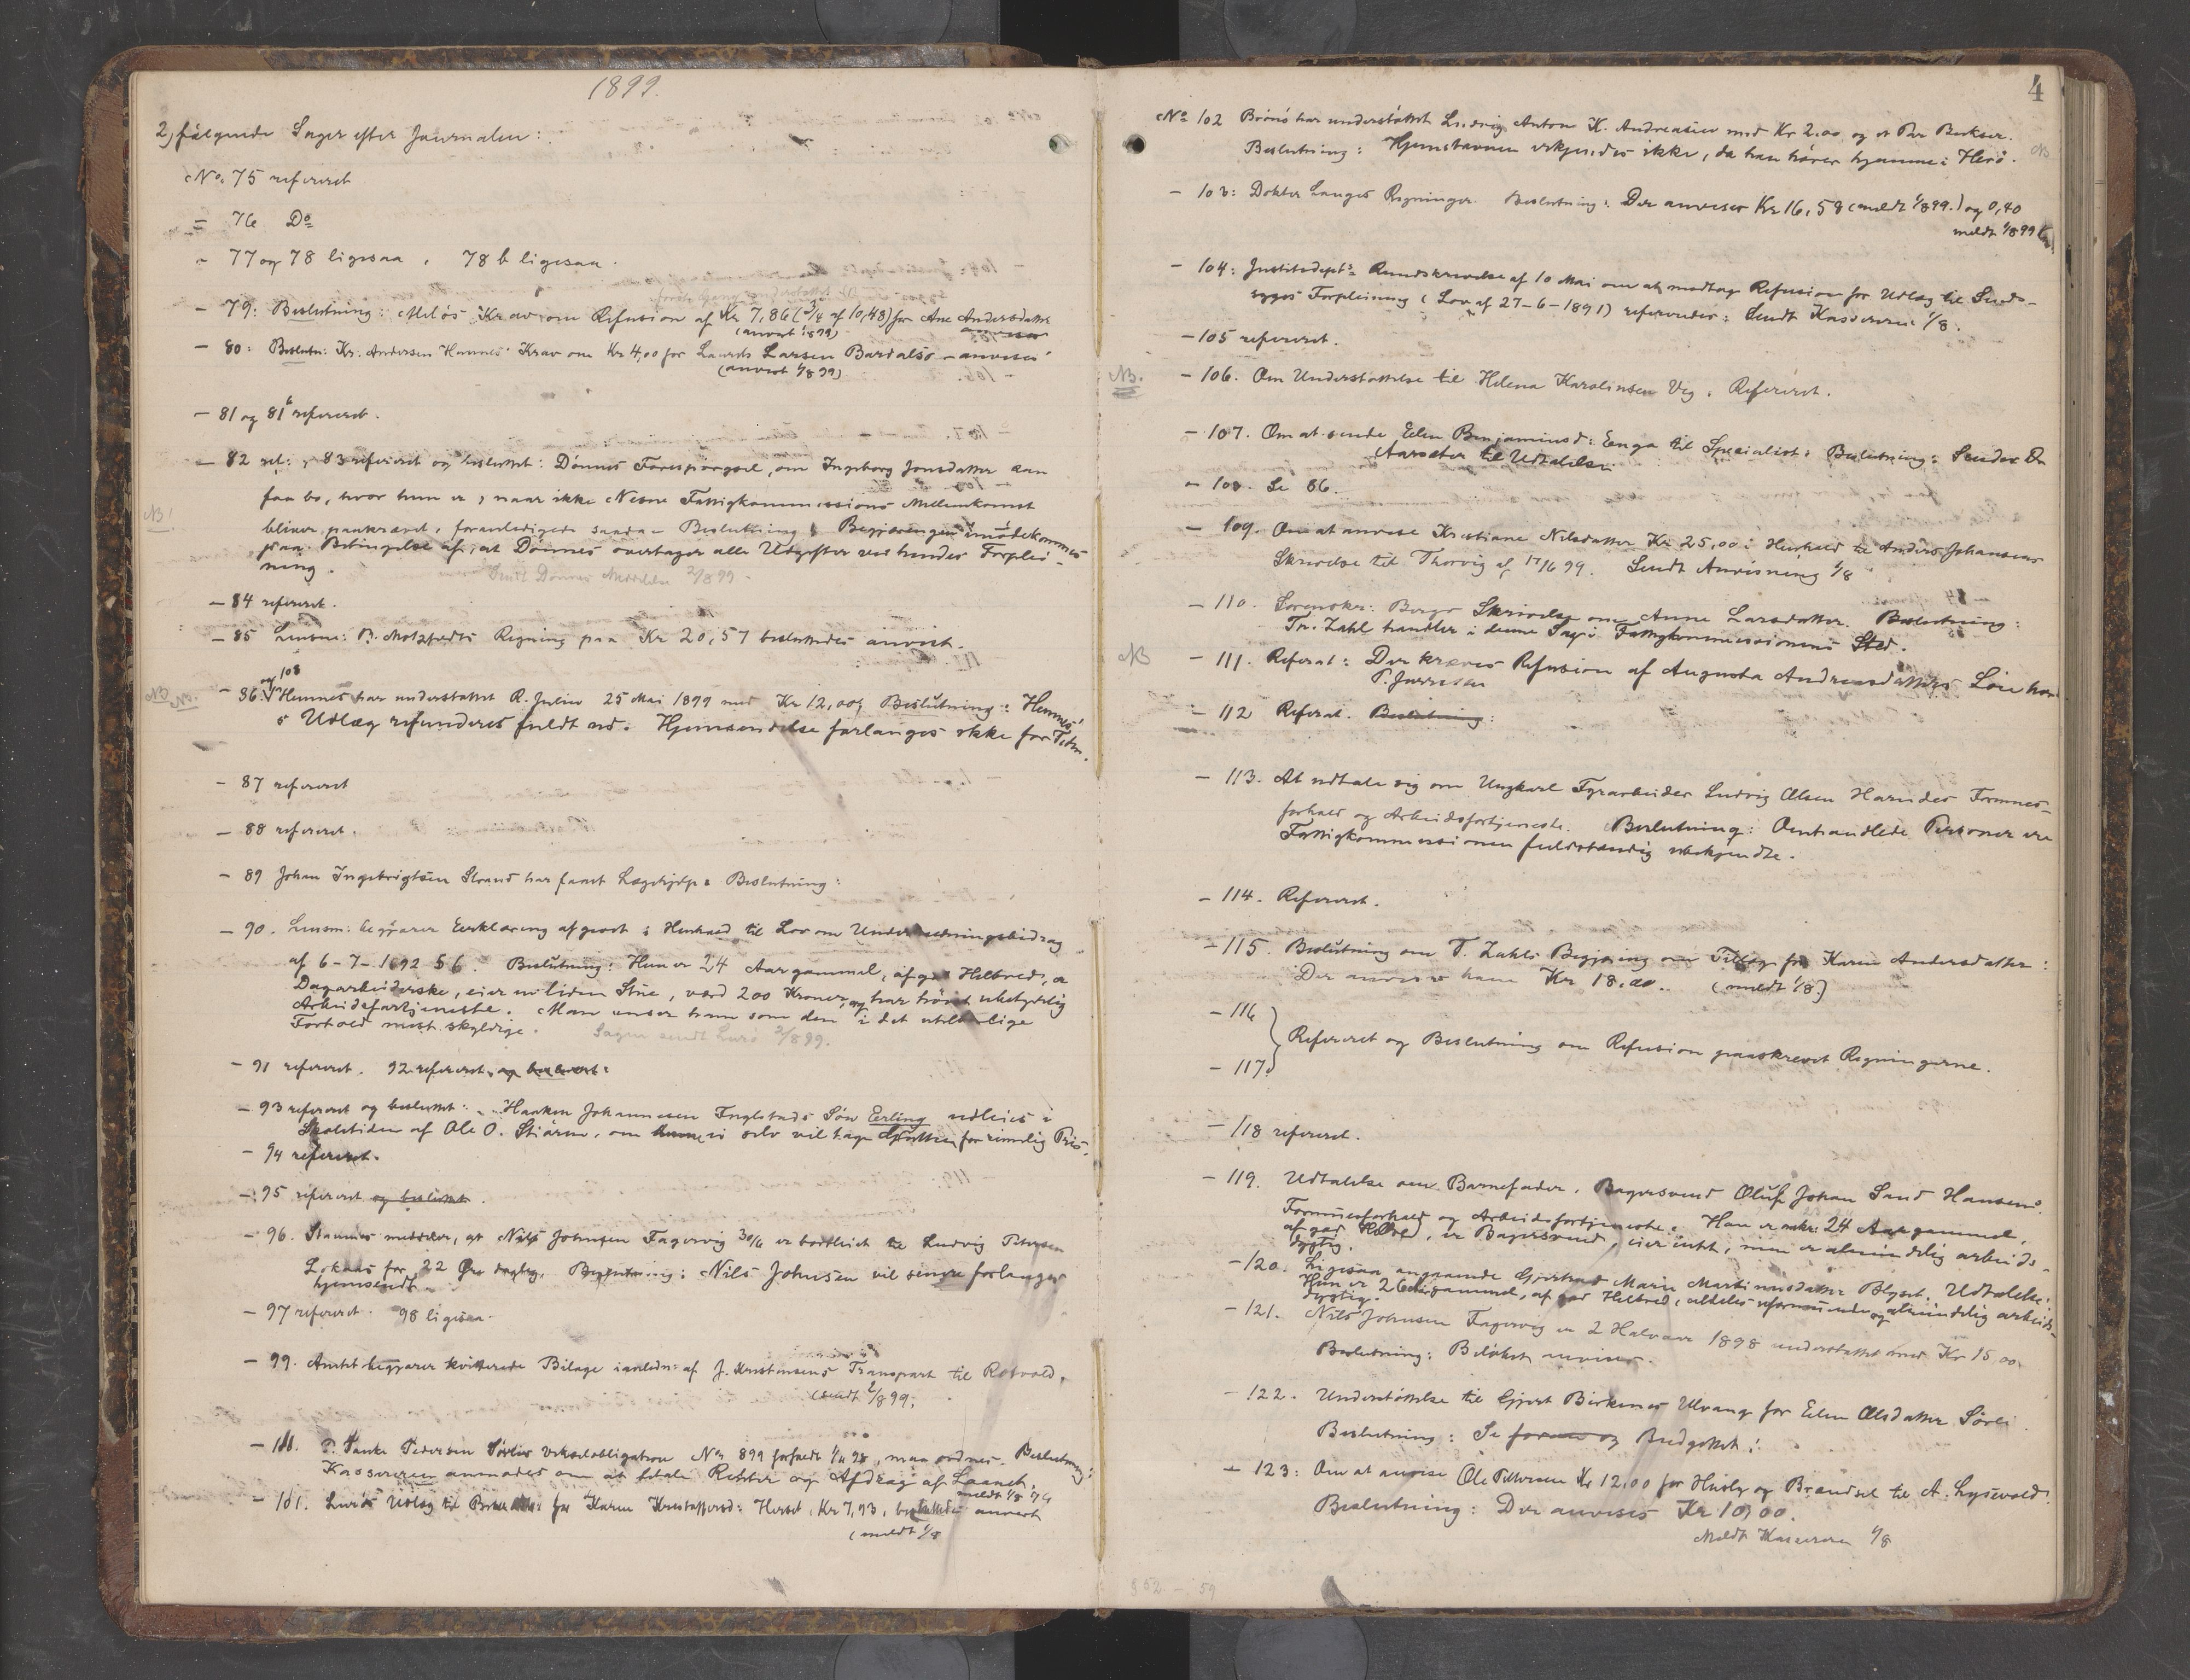 1899.
2, følgende Sager efter Journalen:
No. 75 refereret
- 76 Do
- 77 og 78 ligesaa, 78 b ligesaa.
- 79: Beslutning: Meløs Krav om Refusion af Kr 7,86 (3/4 af 10,48) for Ane Andersdatter
anvises
(anvist 1/8 99)
- 80: Beslutn: Kr. Andersen Hemnes' Krav om Kr 4,00 for Laurits Larsen Bardalsø - anvises
(anvist 1/8 99)
- 81 og 81b refereret.
- 82 ref: , 83 refereret og besluttet: Dønnes Forespørgsel, om Ingeborg Jonsdatter kan
faa bo, hvor hun er, naar ikke Nesne Fattigkommissions Mellemkomst
NB!
bliver paakrævet, foranledigede saadan Beslutning: Begjæringen imødekommes
paa Betingelse af, at Dønnes overtager alle Udgifter ved hendes Forplei-
ning.
Sendt Dønnes Meddelelse 2/8 99.
- 84 refereret.
- 85 Lensm: B. Motzfeldts Regning paa Kr 20,57 besluttedes anvist.
og 108
NB NB.
- 86. Hemnes har understøttet R. Julin 25 Mai 1899 med Kr 12,00, Beslutning: Hemnes'
s Udlæg refunderes fuldt ud. Hjemsendelse forlanges ikke for Tiden.
- 87 refereret
- 88 refereret.
- 89 Johan Ingebrigtsen Strand har faaet Lægehjelp: Beslutning:
- 90. Lensm: begjærer Erklæring afgivet i Henhold til Lov om Underholdningsbidrag
af 6-7-1892 § 6. Beslutning: Hun er 24 Aar gammel, af god Helbred, er
Dagarbeiderske, eier en liden Stue, værd 200 Kroner, og har høist ubetydelig
Arbeidsfortjeneste. Man anser hun som den i det utilbørlige
Forhold mest skyldige.
Sagen sendt Lurø 2/8 99.
- 91 refereret. 92 refereret, og besluttet:
- 93 refereret og besluttet: Haaken Johannesen Englstads Søn Erling udleies i
Skoletiden af Ole O. Stiaren, om selv vil tage Gutten for rimelig Pris.
- 94 refereret.
- 95 refereret og besluttet.
- 96. Stamnes meddeler, at Nils Johnsen Fagervig 30/6 er bortleiet til Ludvig Petersen
Lokaas for 22 Øre daglig. Beslutning: Nils Johnsen vil senere forlanges
hjemsendt.
- 97 refereret. 98 ligesaa.
- 99. Amtet begjærer kvitterede Bilage ianledn: af J. Kristensens Transport til Rotvold.
(sendt 2/8 99.
- 100. P. Tanke Pedersen Sørlies Vekselobligation No 899 forfaldt 1/4 98, maa ordnes. Beslutning:
Kassereren anmodes om at betale Renter og Afdrag af Laanet.
meldt 1/8
- 101. Lurøs Udlæg til for Karen Kristoffersd: Herset, Kr 7,93, besluttedes anvist
(meldt 1/8
4
No 102 Brønø har understøttet Ludvig Anton K. Andreasen med Kr 2,00 og et Par Bukser.
Beslutning: Hjemstavnen vedkjendes ikke, da han hører hjemme i Herø.
NB
- 103: Doktor Langes Regninger. Beslutning: Der anvises Kr 16,58 (meldt 1/8 99.) og 0,40
meldt 1/8 99
- 104: Justitsdept:s Rundskrivelse af 10 Mai om at modtage Refusion for Udlæg til Sinds-
syges Forpleining (Lov af 27-6-1891) refereredes: Sendt Kassereren 1/8.
- 105 refereret.
NB.
- 106. Om Understøttelse til Helena Karolinsen Veg. Refereret.
- 107. Om at sende Elen Benjaminsd: Enga til Specialist: Beslutning: Sendes Dr
Aarsæther til Udtalelse
- 108. Se 86.
- 109. Om at anvise Kristiane Nilsdatter Kr 25,00 i Henhold til Anders Johansens
Skrivelse til Thorvig af 17/6 99. Sendt Anvisning 1/8
- 110. Sorenskr: Berger Skrivelse om Anne Larsdatter. Beslutning:
Tr. Zahl handler i denne Sag i Fattigkommissionens Sted.
NB
- 111. Referat: Der kræves Refusion af Augusta Andreasdatters Løn hos
P. Jürgensen
- 112 Referat. Beslutning:
- 113. At udtale sig om Ungkarl Fyrarbeider Ludvig Olsen Haruldes Formues-
forhold og Arbeidsfortjeneste. Beslutning: Omhandlede Personer ere
Fattigkommissionen fuldstændig ubekjendte.
- 114. Refereret.
- 115. Beslutning om T. Zahls Begjæring om Tillæg for Karen Andersdatter:
Der anvises ham Kr 18,00. (meldt 1/8.)
- 116
Refereret og Beslutning om Refusion paaskrevet Regningerne.
- 117.
- 118 refereret.
- 119. Udtalelse om Barnefader, Bagersvend Oluf Johan Sand Hansens
Formuesforhold og Arbeidsfortjeneste. Han er omkr: 24 Aar gammel,
af god Helbred, er Bagersvend, eier intet, men er almindelig arbeids-
dygtig.
- 120. Ligesaa angaaende Gjertrud Marie Martinusdatter Blyset. Udtalelse:
Hun er 26 Aar gammel, af god Helbred, aldeles uformuende og almindelig arbeids-
dygtig.
- 121. Nils Johnsen Fagervig er 2 Halvaar 1898 understøttet med Kr 15,00.
Beslutning: Beløbet anvises.
- 122. Understøttelse til Gjert Birkenes Ulvang for Elen Olsdatter Sørli
Beslutning: Se foran og Budgettet!
- 123: Om at anvise Ole Pettersen Kr 12,00 for Husly og Brændsel til A. Lysevold.
Beslutning: Der anvises Kr 10,00.
Meldt Kassereren 1/8
§ 62 - 59